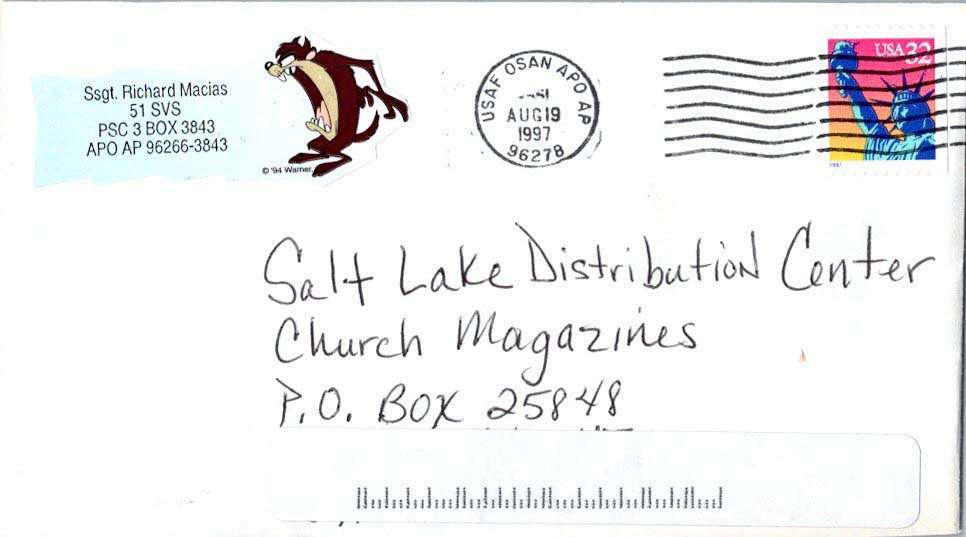 Ssgt. Richard Macias
51 SVS
PSC 3 BOX 3843
APO AP 96266-3843
© '94 Warner.
USAF OSAN APO AP
AUG 19
1997
96278
USA 32
1997
Salt Lake Distribution Center
Church Magazines
P.O. Box 25848